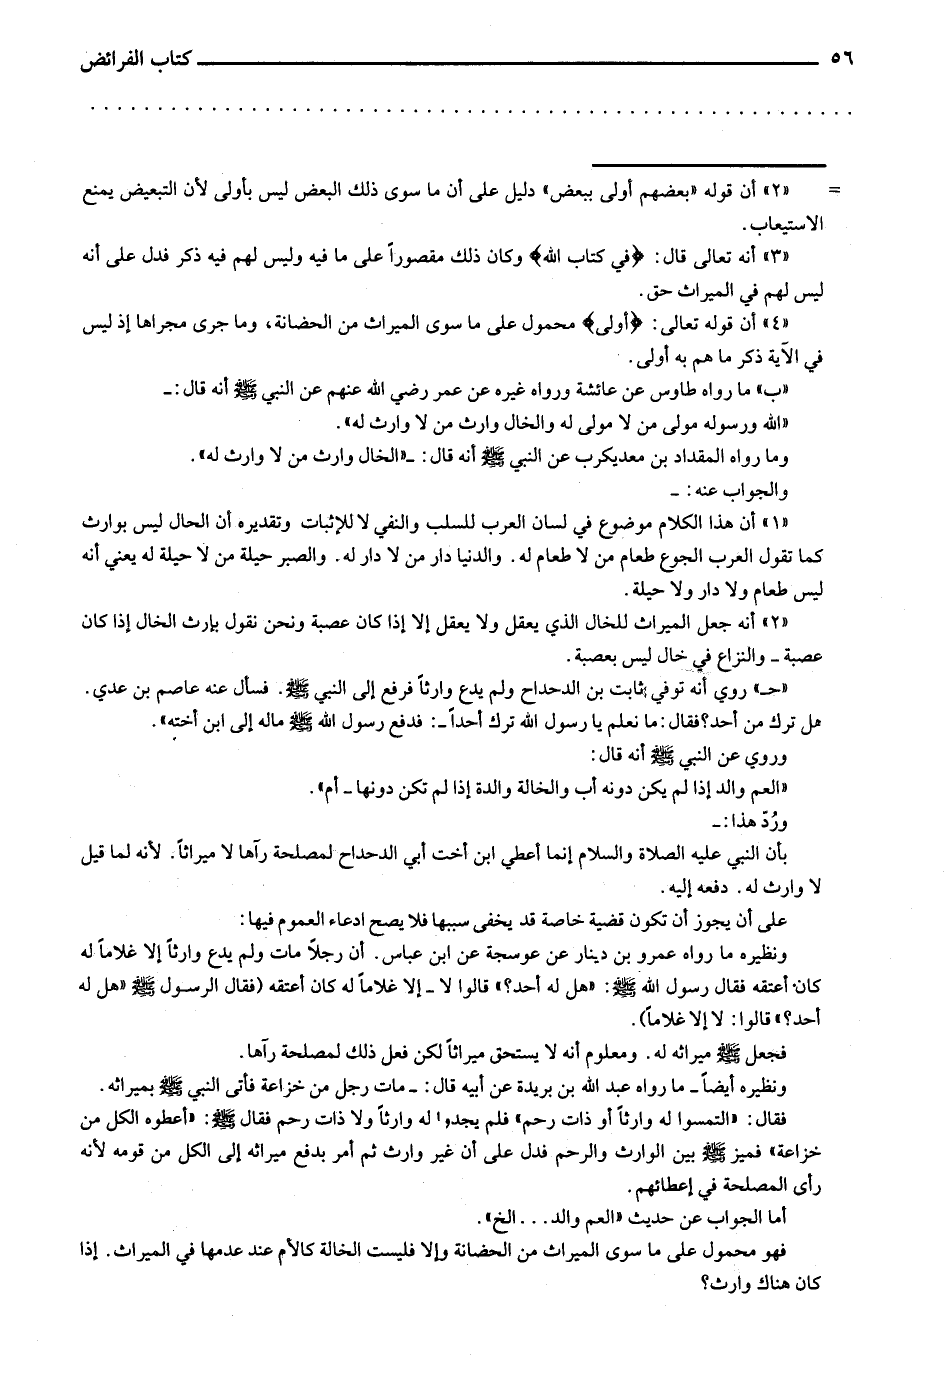 ٥٦ ــــــــــــــــــــ كتاب الفرائض
= «٢» أن قوله «بعضهم أولى ببعض» دليل على أن ما سوى ذلك البعض ليس بأولى لأن التبعيض يمنع
الاستيعاب.
«٣» أنه تعالى قال: ﴿في كتاب الله﴾ وكان ذلك مقصوراً على ما فيه وليس لهم فيه ذكر فدل على أنه
ليس لهم في الميراث حق.
«٤» أن قوله تعالى: ﴿أولى﴾ محمول على ما سوى الميراث من الحضانة، وما جرى مجراها إذ ليس
في الآية ذكر ما هم به أولى.
«ب» ما رواه طاوس عن عائشة ورواه غيره عن عمر رضي الله عنهم عن النبي ﷺ أنه قال: ـ
«الله ورسوله مولى من لا مولى له والخال وارث من لا وارث له».
وما رواه المقداد بن معديكرب عن النبي ﷺ أنه قال: ـ «الخال وارث من لا وارث له».
والجواب عنه: ـ
«١» أن هذا الكلام موضوع في لسان العرب للسلب والنفي لا للإثبات وتقديره أن الحال ليس بوارث
كما تقول العرب الجوع طعام من لا طعام له. والدنيا دار من لا دار له. والصبر حيلة من لا حيلة له يعني أنه
ليس طعام ولا دار ولا حيلة.
«٢» أنه جعل الميراث للخال الذي يعقل ولا يعقل إلا إذا كان عصبة ونحن نقول بإرث الخال إذا كان
عصبة ـ والنزاع في خال ليس بعصبة.
«جـ» روي أنه توفي ثابت بن الدحداح ولم يدع وارثاً فرفع إلى النبي ﷺ. فسأل عنه عاصم بن عدي.
هل ترك من أحد؟ فقال: ما نعلم يا رسول الله ترك أحداً ـ: فدفع رسول الله ﷺ ماله إلى ابن أخته».
وروي عن النبي ﷺ أنه قال:
«العم والد إذا لم يكن دونه أب والخالة والدة إذا لم تكن دونها ـ أم».
ورُدّ هذا: ـ
بأن النبي عليه الصلاة والسلام إنما أعطي ابن أخت أبي الدحداح لمصلحة رآها لا ميراثاً. لأنه لما قيل
لا وارث له. دفعه إليه.
على أن يجوز أن تكون قضية خاصة قد يخفى سببها فلا يصح ادعاء العموم فيها:
ونظيره ما رواه عمرو بن دينار عن عوسجة عن ابن عباس. أن رجلاً مات ولم يدع وارثاً إلا غلاماً له
كان أعتقه فقال رسول الله ﷺ: «هل له أحد؟» قالوا لا ـ إلا غلاماً له كان أعتقه (فقال الرسول ﷺ «هل له
أحد؟» قالوا: لا إلا غلاماً).
فجعل ﷺ ميراثه له. ومعلوم أنه لا يستحق ميراثاً لكن فعل ذلك لمصلحة رآها.
ونظيره أيضاً ـ ما رواه عبد الله بن بريدة عن أبيه قال: ـ مات رجل من خزاعة فأتى النبي ﷺ بميراثه.
فقال: «التمسوا له وارثاً أو ذات رحم» فلم يجدوا له وارثاً ولا ذات رحم فقال ﷺ: «أعطوه الكل من
خزاعة» فميز ﷺ بين الوارث والرحم فدل على أن غير وارث ثم أمر بدفع ميراثه إلى الكل من قومه لأنه
رأى المصلحة في إعطائهم.
أما الجواب عن حديث «العم والد. . . الخ».
فهو محمول على ما سوى الميراث من الحضانة وإلا فليست الخالة كالأم عند عدمها في الميراث. إذا
كان هناك وارث؟